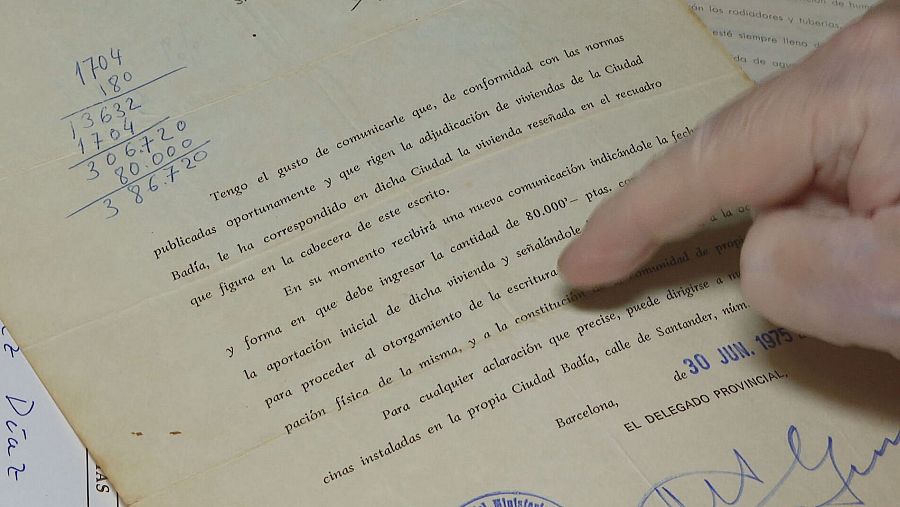 1704
180
13632
1704
306.720
80.000
386.720
Tengo el gusto de comunicarle que, de conformidad con las normas
publicadas oportunamente y que rigen la adjudicación de viviendas de la Ciudad
Badía, le ha correspondido en dicha Ciudad la vivienda reseñada en el recuadro
que figura en la cabecera de este escrito.
En su momento recibirá una nueva comunicación indicándole la fech
y forma en que debe ingresar la cantidad de 80.000'— ptas. co
la aportación inicial de dicha vivienda y señalándole a la oc
para proceder al otorgamiento de la escritura
pación física de la misma, y a la constitución comunidad de propi
Para cualquier aclaración que precise, puede dirigirse a nu
cinas instaladas en la propia Ciudad Badía, calle de Santander, núm.
Barcelona, de 30 JUN. 1975
EL DELEGADO PROVINCIAL,
los radiadores y tuberías,
esté siempre lleno d
da de agu
Díaz